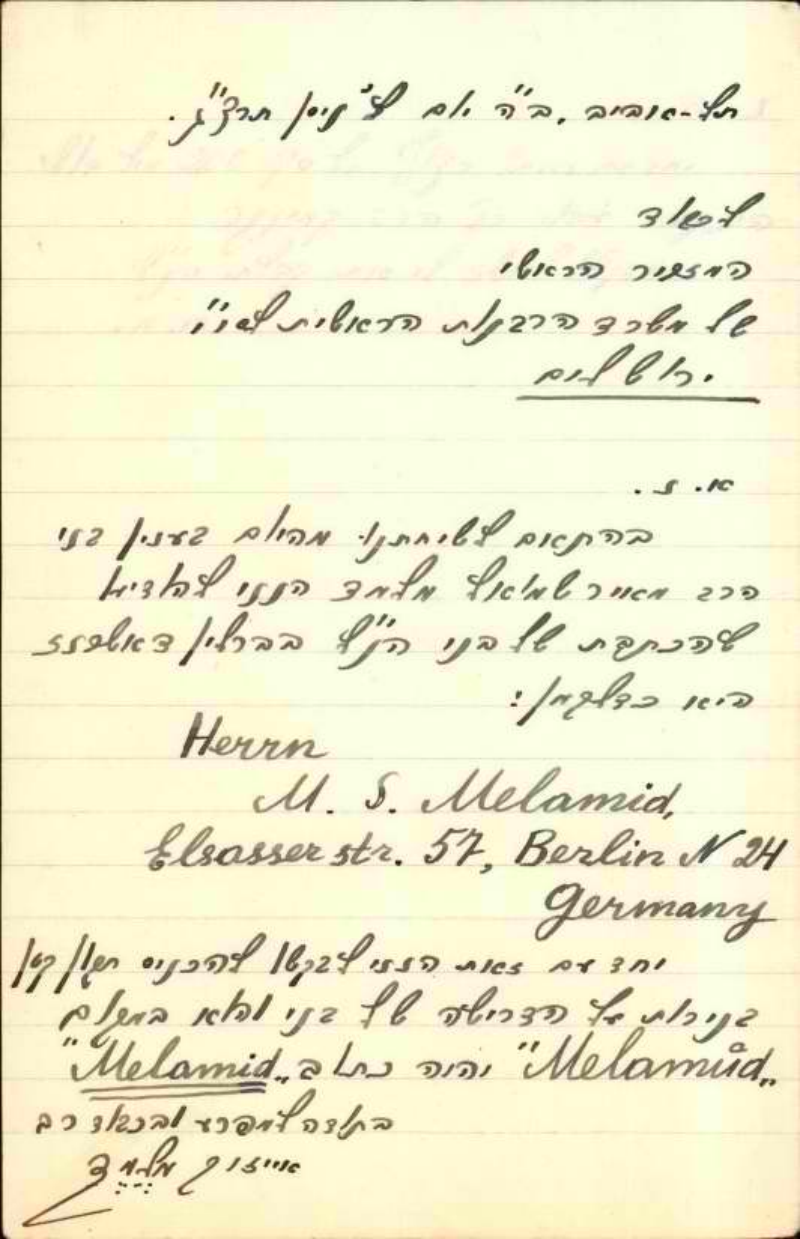 תל-אביב, ב"ה יום ל' ניסן תרצ"ג.
לכבוד
המזכיר הראשי
של משרד הרבנות הראשית לא"י
ירושלים
א. נ.
בהתאם לשיחתנו מהיום בענין בני
הרב מאיר שמואל מלמד הנני להודיע
שהכתבת של בני הנ"ל בברלין
היא כדלקמן:
Herrn
M. S. Melamid,
Elsasser str. 57, Berlin N 24
Germany
יחד עם זאת הנני לבקש להכניס תקון קטן
בניירות של הדרישה של בני והוא במקום
„Melamŭd" יהיה כתוב „Melamid"
בתודה למפרע ובכבוד רב
אייזיק מלמד